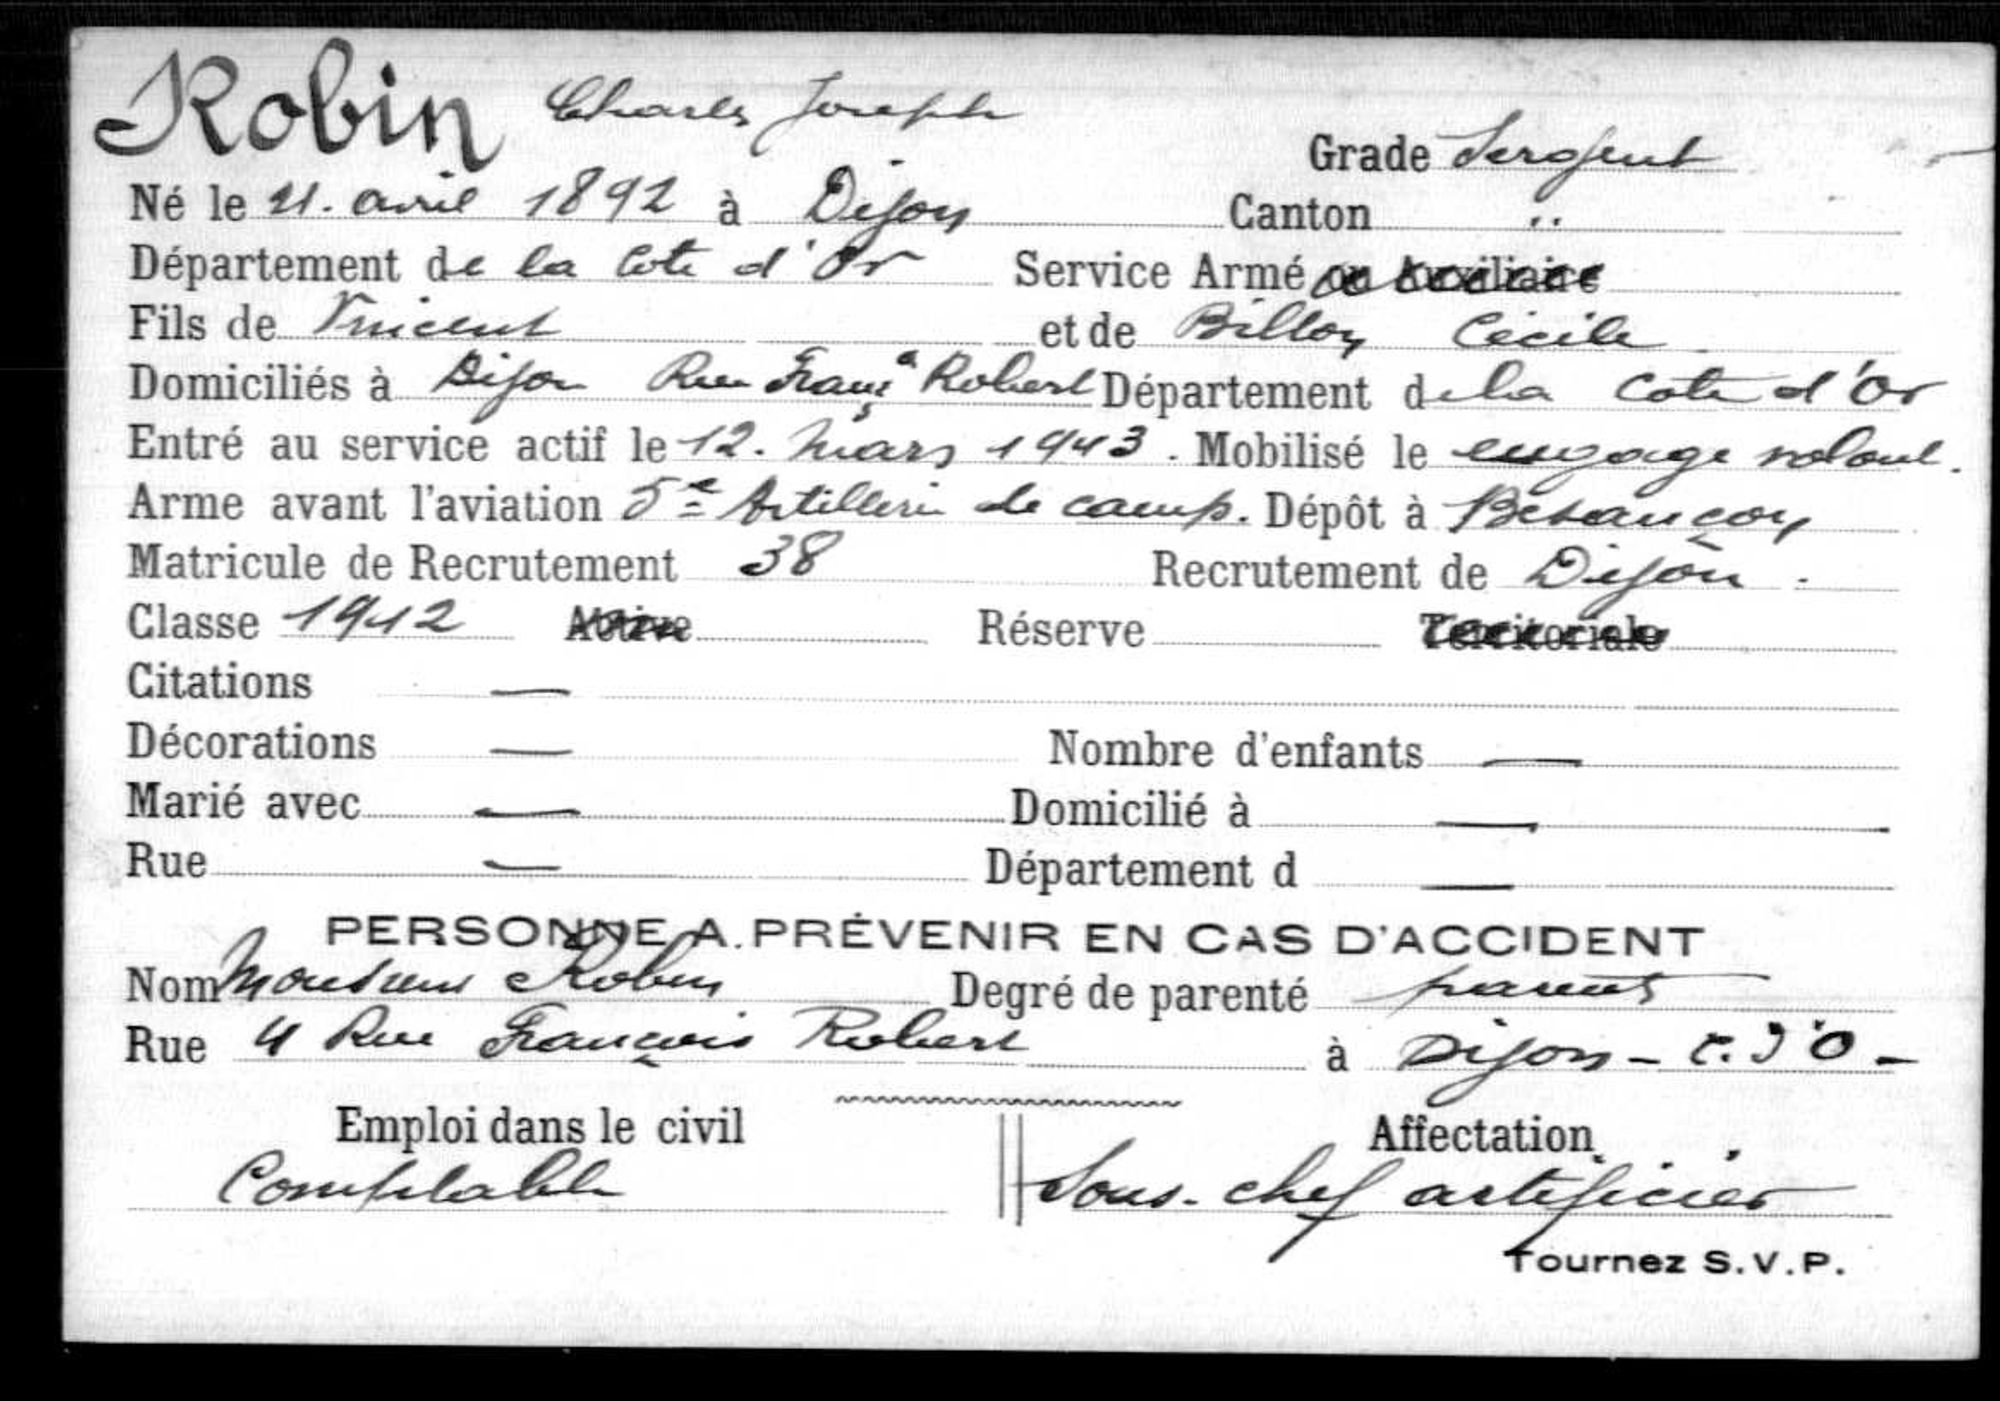 Robin Charles Joseph
Grade Sergent
Né le 21. avril 1892 à Dijon Canton "
Département de la Cote d'Or Service Armé ou Auxiliaire
Fils de Vincent et de Billoy Cécile
Domiciliés à Dijon Rue Franç s Robert Département de la Cote d'Or
Entré au service actif le 12. Mars 1913. Mobilisé le engagé volont.
Arme avant l'aviation 5e Artillerie de camp. Dépôt à Besançon
Matricule de Recrutement 38 Recrutement de Dijon.
Classe 1912 Active Réserve Territoriale
Citations —
Décorations — Nombre d'enfants —
Marié avec — Domicilié à —
Rue — Département d —
PERSONNE A PRÉVENIR EN CAS D'ACCIDENT
Nom Monsieur Robin Degré de parenté parents
Rue 4 Rue François Robert à Dijon - C. d'O -
Emploi dans le civil Affectation
Comptable Sous-chef artificier
Tournez S.V.P.